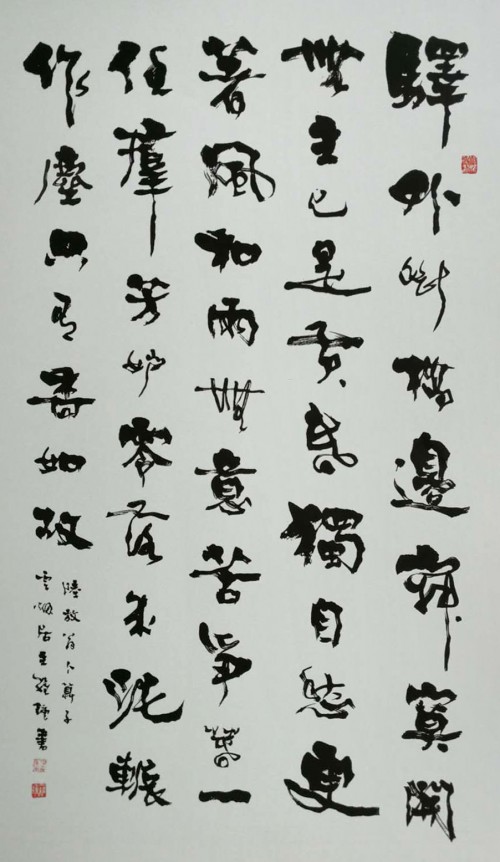 驛外斷橋邊寂寞開
無主已是黃昏獨自愁更
著風和雨無意苦爭春一
任羣芳妒零落成泥輾
作塵只有香如故
陸放翁卜算子
居主 書